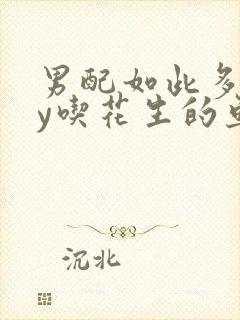 男配如此多
y喫花生的
沉北